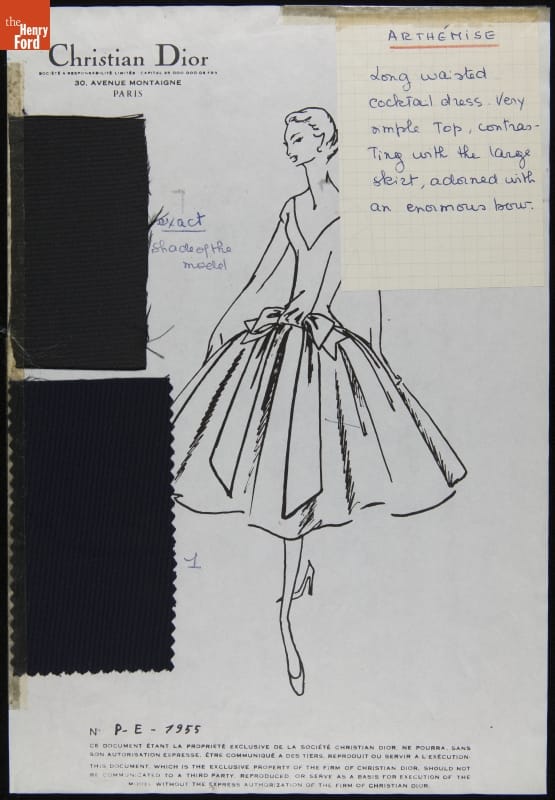 the
Henry
Ford
Christian Dior
SOCIÉTÉ A RESPONSABILITÉ LIMITÉE CAPITAL 25 000 000 DE FRS
30, AVENUE MONTAIGNE
PARIS
ARTHÉMISE
Long waisted
cocktail dress. Very
simple Top, contras-
Ting with the large
skirt, adorned with
an enormous bow.
exact
shade of the
model
1
N° P-E-1955
CE DOCUMENT ÉTANT LA PROPRIÉTÉ EXCLUSIVE DE LA SOCIÉTÉ CHRISTIAN DIOR, NE POURRA, SANS
SON AUTORISATION EXPRESSE, ÊTRE COMMUNIQUÉ A DES TIERS, REPRODUIT OU SERVIR A L'EXÉCUTION.
THIS DOCUMENT, WHICH IS THE EXCLUSIVE PROPERTY OF THE FIRM OF CHRISTIAN DIOR, SHOULD NOT
BE COMMUNICATED TO A THIRD PARTY, REPRODUCED, OR SERVE AS A BASIS FOR EXECUTION OF THE
MODEL WITHOUT THE EXPRESS AUTHORIZATION OF FIRM OF CHRISTIAN DIOR.